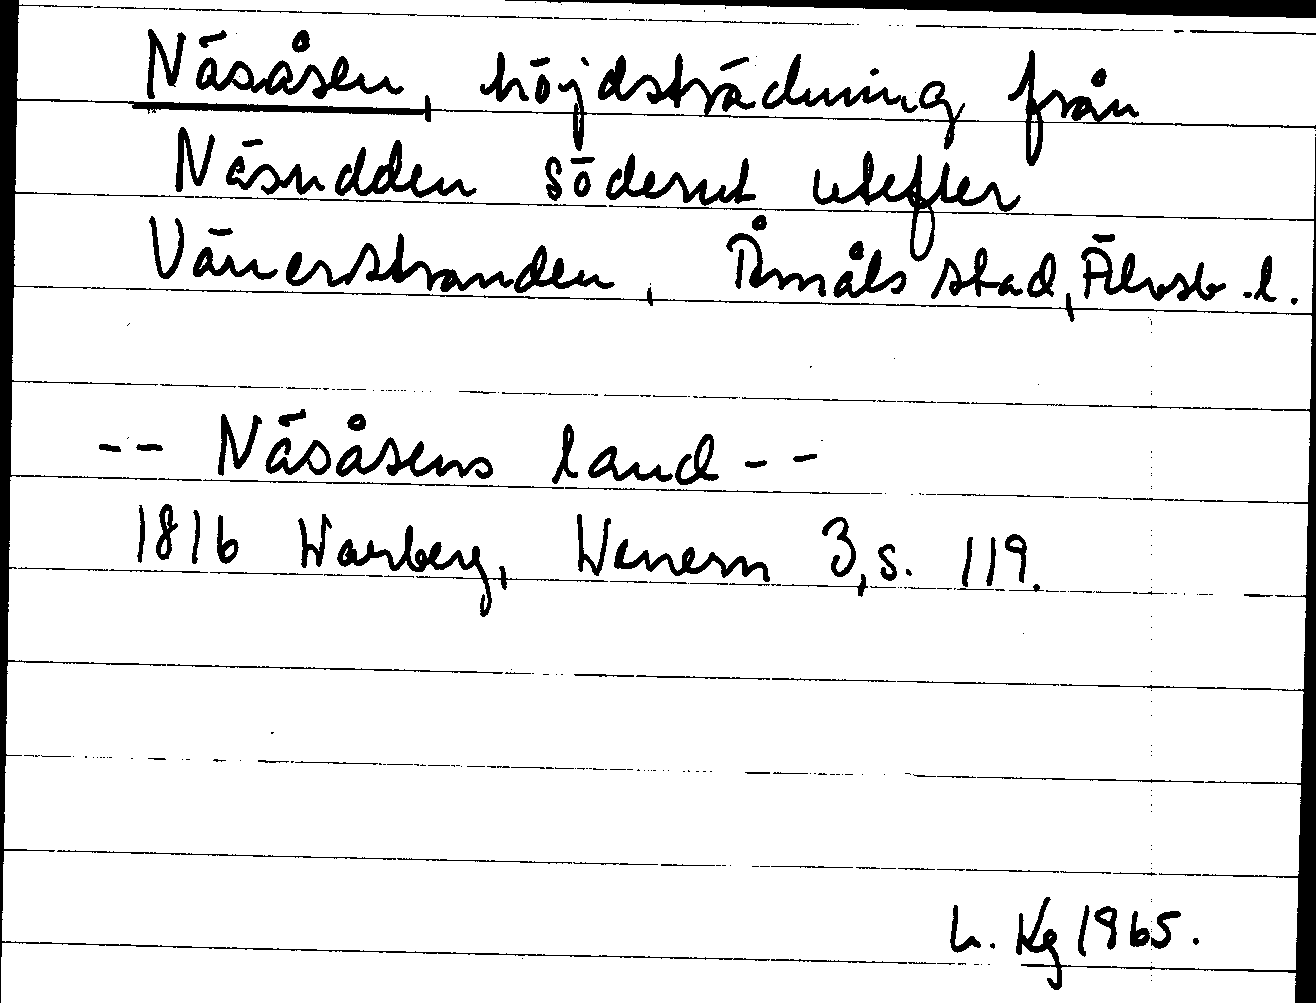 Näsåsen, höjdsträckning från
Näsudden söderut utefter
Vänerstranden, Åmåls stad, Älvsb.l.
-- Näsåsens land --
1816 Warberg, Wenern 3, s. 119.
L. Kg 1965.